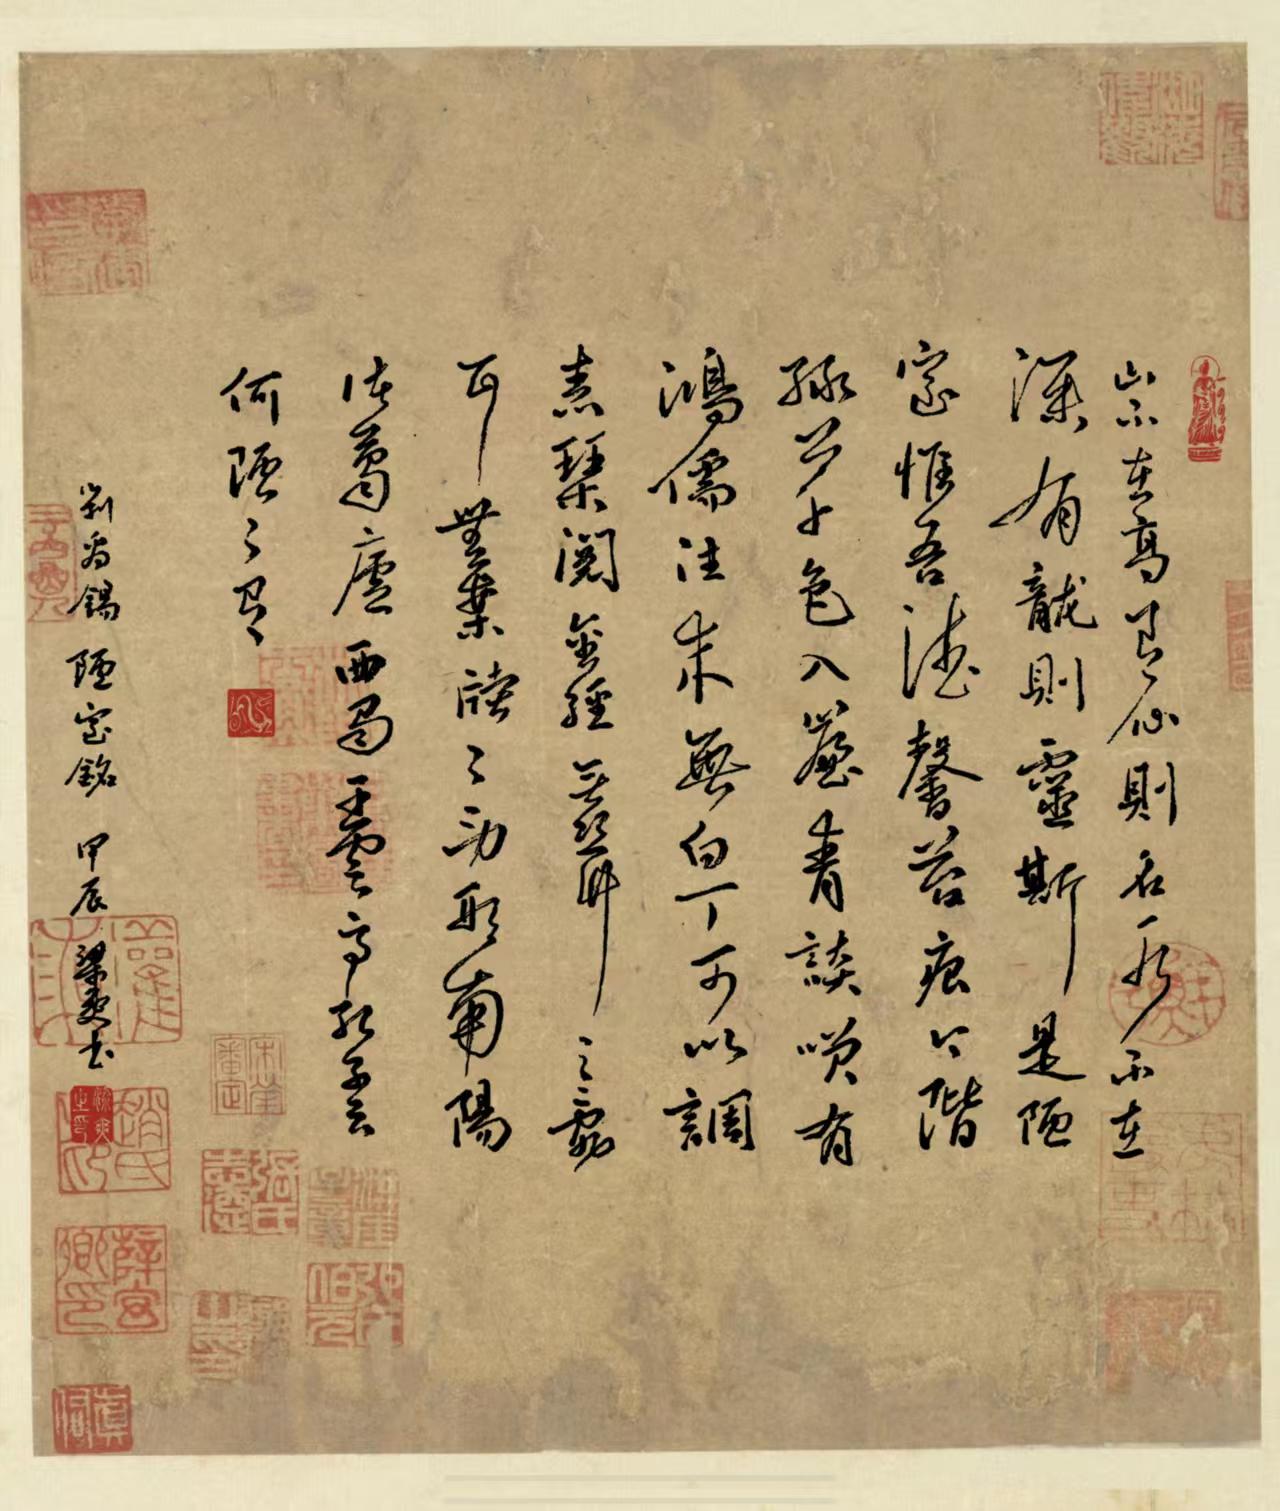 山不在高有仙則名水不在
深有龍則靈斯是陋
室惟吾德馨苔痕上階
綠草色入簾青談笑有
鴻儒往來無白丁可以調
素琴閱金經無絲竹之亂
耳無案牘之勞形南陽
諸葛廬西蜀子雲亭孔子云
何陋之有
劉禹錫 陋室銘 甲辰 梁爽書